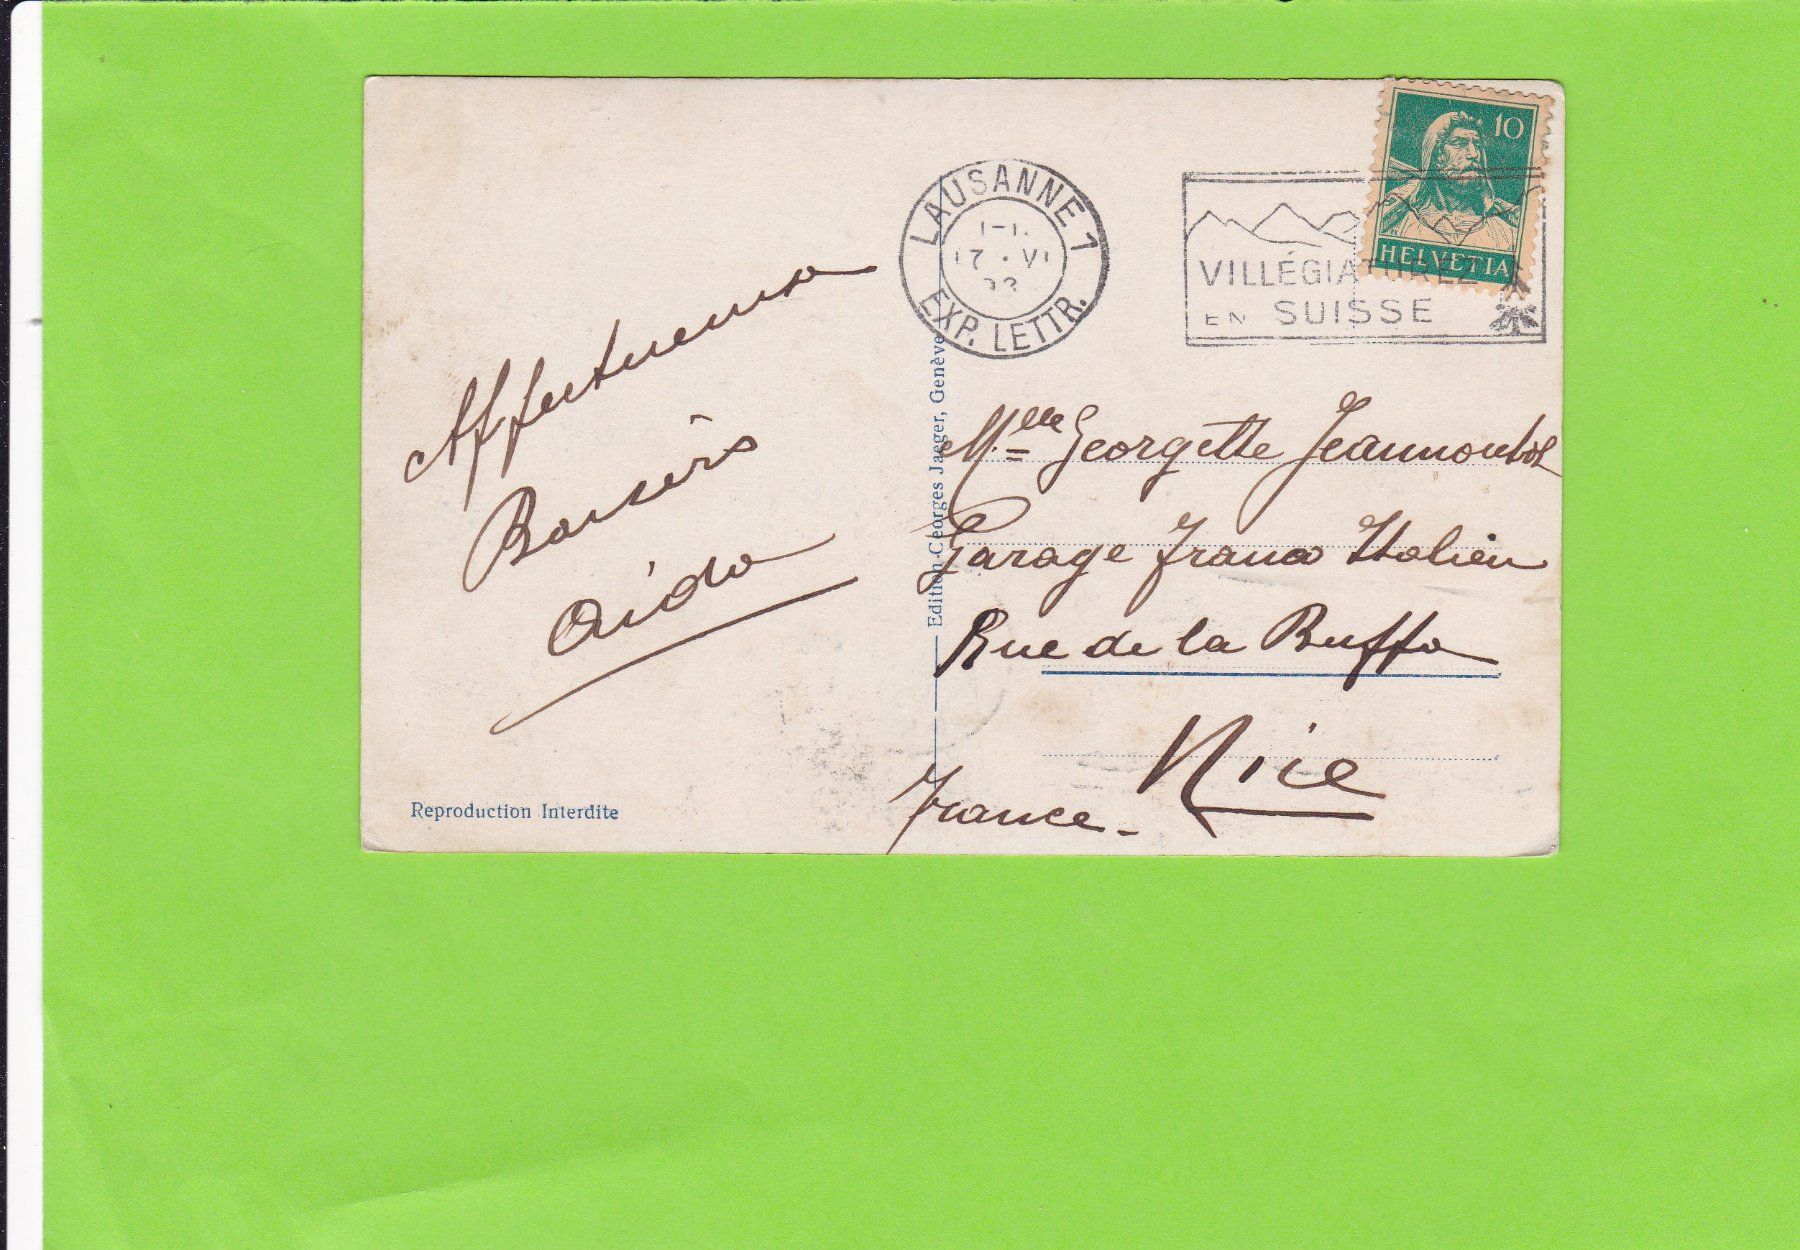 10
HELVETIA
LAUSANNE 1
17 . VI
EXP. LETTR.
VILLÉGIATUREZ
EN SUISSE
Affectueux
Baisers
Aïda
Mlle Georgette
Garage Franco Italien
Rue de la Buffa
Nice
France -
Edition Georges Jaeger, Genève
Reproduction Interdite